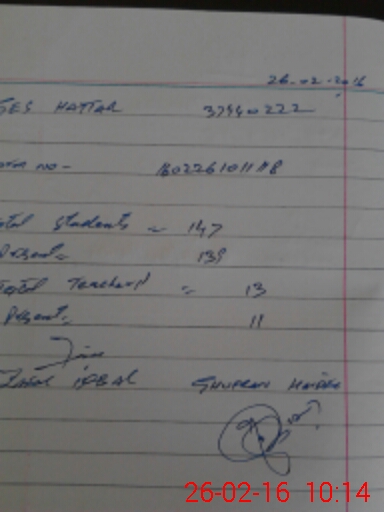 26-02-2016
GES HATTAR 37440222
no - 160226101118
total students = 147
Present = 139
Total Teachers = 13
Present = 11
Zafar iqbal Ghufran
26-02-16 10:14